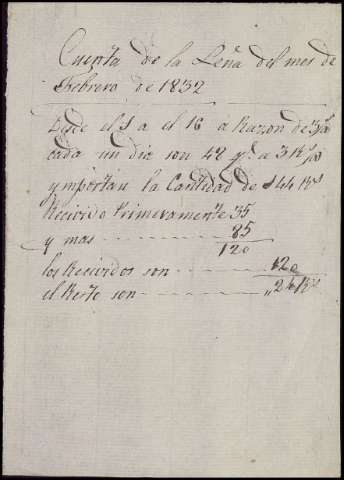 Cuenta de la Leña del mes de
Febrero de 1832
Desde el 1 a el 16 a Razon de 3 q.s
cada un dia son 48 q.s a 3 R.s
y importan la Cantidad de 144 R.s
Recivido Primeramente 35
y mas 85
120
los Recividos son 120
el Resto son ,,24 R.s